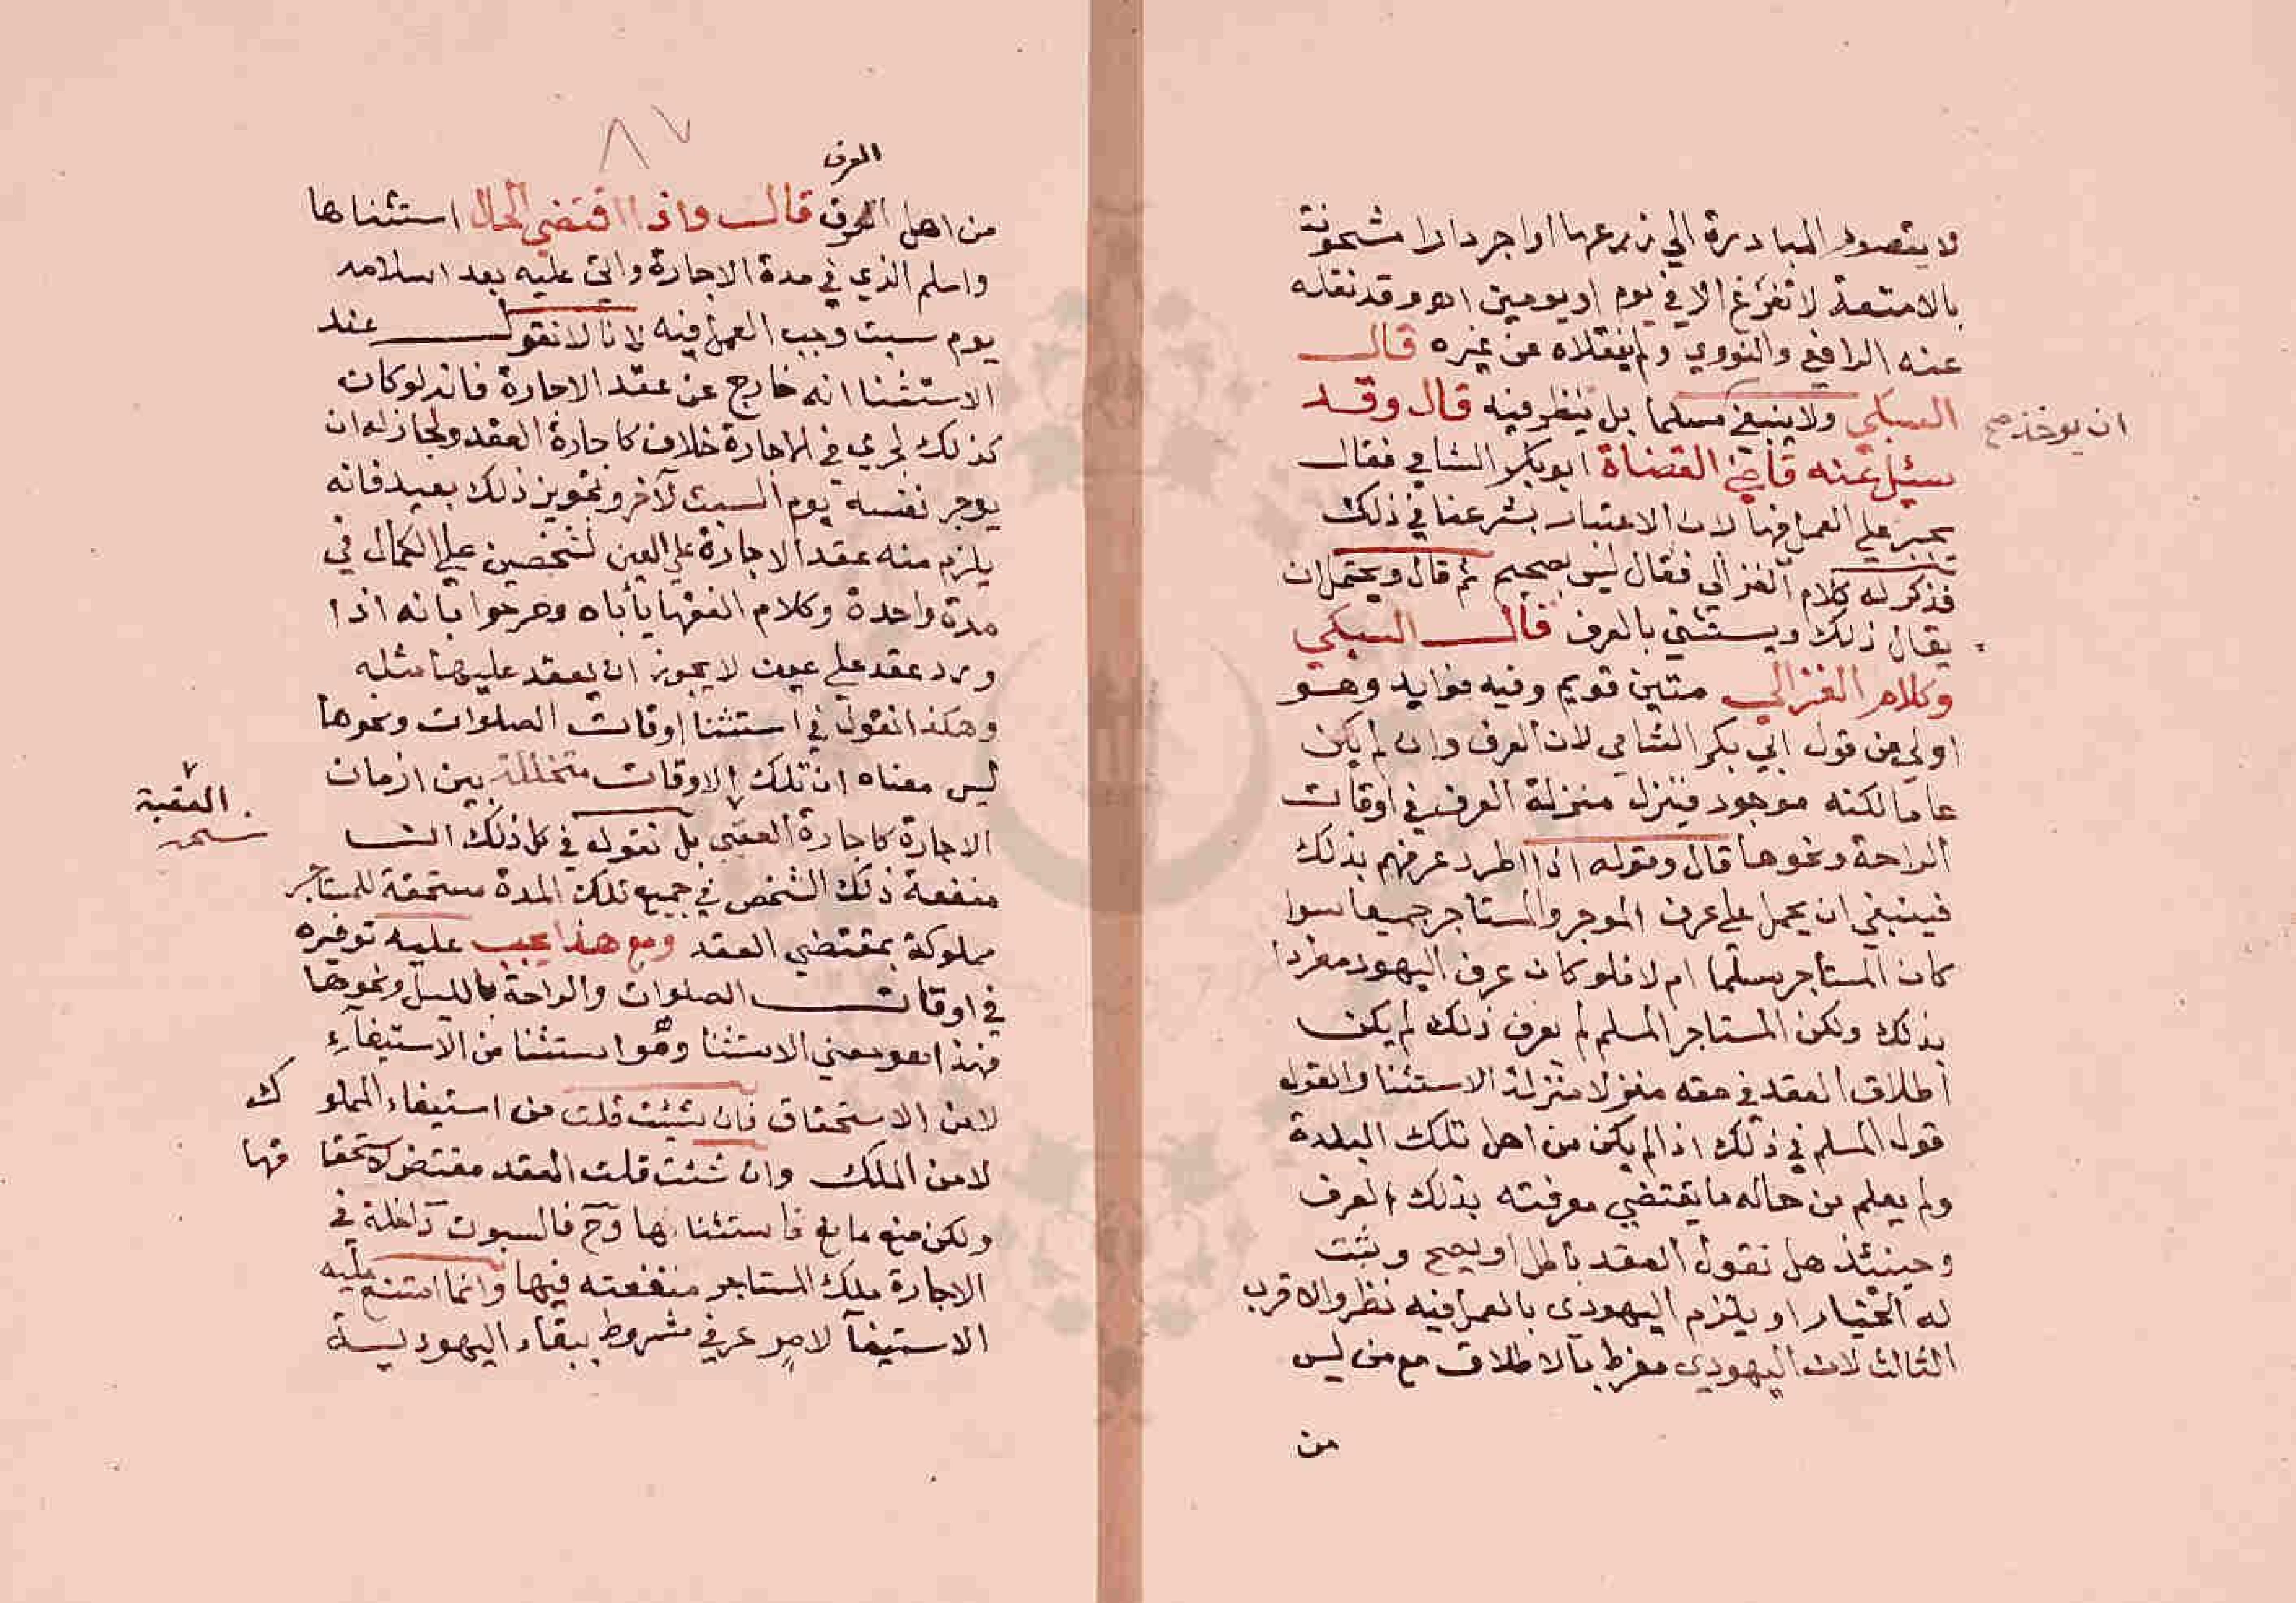 لا يتصور المبادرة الي زرعها او اجر دارا مشحونة
بالامتعة لا تفرغ الا في يوم او يومين اهـ وقد نقله
عنه الرافعي والنووي ولم ينقلاه عن غيره قال
السبكي ولا ينبغي مسلما بل ينظر فيه قال وقد
ان يوخذ صح
سئل عنه قاضي القضاة ابو بكر الشامي فقال
يجبر علي العمل فيها لان الاعتبار بشرعنا في ذلك
فذكر له كلام الغزالي فقال ليس بصحيح ثم قال ويحتمل ان
يقال ذلك ويستثني بالعرف قال السبكي
وكلام الغزالي متين قويم وفيه فوايد وهو
اولي من قول ابي بكر الشامي لان العرف وان لم يكن
عاما لكنه موجود فينزل منزلة العرف في اوقات
الراحة ونحوها قال وقوله اذا اطرد عرفهم بذلك
فينبغي ان يحمل علي عرف الموجر والمستاجر جميعا سوا
كان المستاجر مسلما ام لا فلو كان عرف اليهود مفردا
بذلك ولكن المستاجر المسلم لم يعرف ذلك لم يكن
اطلاق العقد في حقه منزلا منزلة الاستثنا والقول
قول المسلم في ذلك اذا لم يكن من اهل تلك البلدة
ولم يعلم من حاله ما يقتضي معرفته بذلك العرف
وحينئذ هل نقول العقد باطل او يصح ويثبت
له الخيار او يلزم اليهودي بالعمل فيه نظر والاقرب
الثالث لان اليهودي مفرط بالاطلاق مع من ليس
من
٨٧
العرف
من اهل العرف قال واذا اقتضي الحال استثناها
واسلم الذي في مدة الاجارة واتي عليه بعد اسلامه
يوم سبت وجب العمل فيه لانا لا نقول عند
الاستثنا انه خارج عن عقد الاجارة فانه لو كان
كذلك لجري في الاجارة خلاف كاجارة العقد ولجاز له ان
يوجر نفسه يوم السبت لآخر وتجويز ذلك بعيد فانه
يلزم منه عقد الاجارة علي العين لشخصين علي الكمال في
مدة واحدة وكلام الفقها يأباه وصرحوا بانه اذا
ورد عقد علي عين لا يجوز ان يعقد عليها مثله
وهكذا نقول في استثنا اوقات الصلوات ونحوها
ليس معناه ان تلك الاوقات متخللة بين ازمان
الاجارة كاجارة العقبي بل نقول في كل ذلك ان
العقبة
نسخه
منفعة ذلك الشخص في جميع تلك المدة مستحقة للمستاجر
مملوكة بمقتضي العقد ومع هذا يجب عليه توفيره
في اوقات الصلوات والراحة بالليل ونحوها
فهذا هو معني الاستثنا وهو استثنا من الاستيفآء
لا من الاستحقاق فان شئت قلت من استيفاء المملوك
لا من الملك وان شئت قلت العقد مقتض لاستحقاقها
ولكن منع مانع فاستثناها وح فالسبوت داخلة في
الاجارة ملك المستاجر منفعته فيها وانما امتنع عليه
الاستيفآ لامر عرفي مشروط ببقاء اليهودية